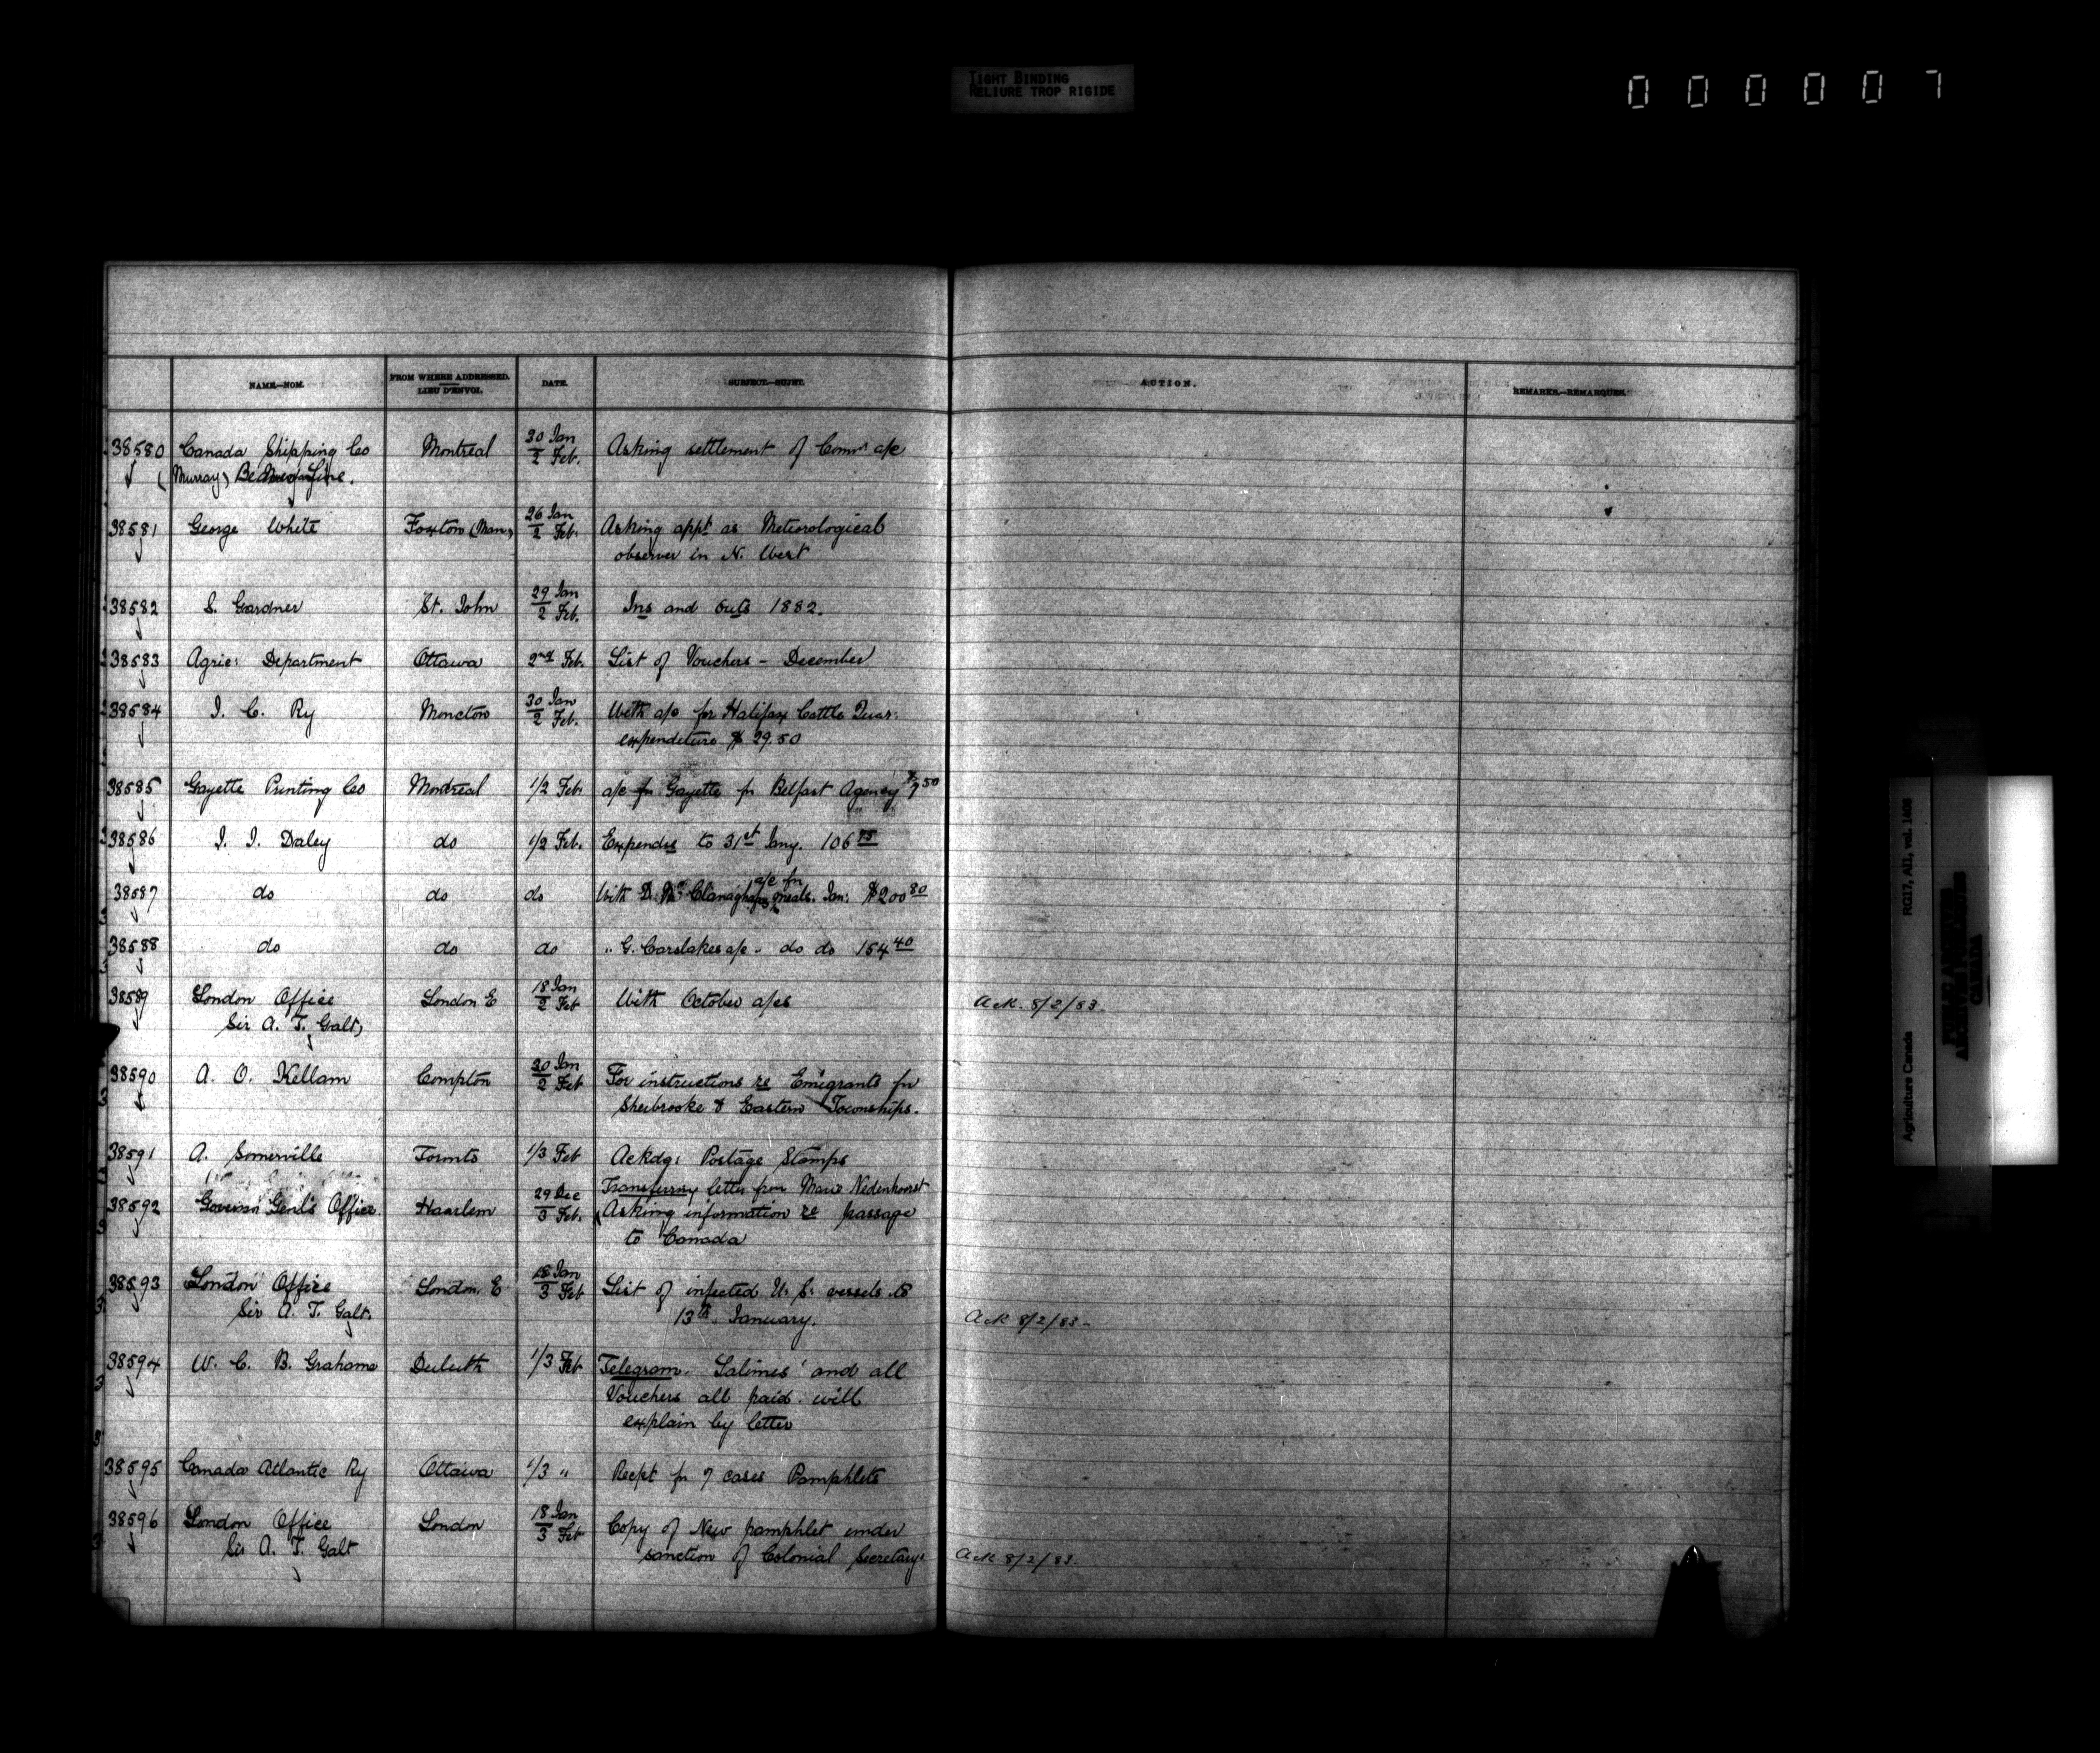 TIGHT BINDING
RELIURE TROP RIGIDE
000007
NAME.—NOM.
FROM WHERE ADDRESSED.
LIEU D'ENVOI.
DATE.
SUBJECT.—SUJET.
ACTION.
REMARKS.—REMARQUES.
38580 Canada Shipping Co Montreal 30 Jan / 2 Feb. Asking settlement of Comn a/c
(Murray) Beaver Line.
38581 George White Foxton (Man) 26 Jan / 2 Feb. Asking appt as Meteorological
observer in N. West
38582 S. Gardner St. John 29 Jan / 2 Feb. Ins and Outs 1882.
38583 Agric: Department Ottawa 2nd Feb. List of Vouchers - December
38584 I. C. Ry Moncton 30 Jan / 2 Feb. With a/c for Halifax Cattle Quar:
expenditure $ 29.50
38585 Gazette Printing Co Montreal 1/2 Feb a/c for Gazette for Belfast Agency $7 50
38586 J. J. Daley do 1/2 Feb. Expendre to 31st Jany. 106
38587 do do do With D. Mc Clanaghans a/c for meals. Jan: $200 80
38588 do do do " G. Carslakes a/c - do do 154 40
38589 London Office London E 18 Jan / 2 Feb With October a/cs Ack. 8/2/83.
Sir A. T. Galt,
38590 A. O. Kellam Compton 30 Jan / 2 Feb For instructions re Emigrants for
Sherbrooke & Eastern Townships.
38591 A. Somerville Toronto 1/3 Feb Ackdg: Postage Stamps
38592 Governor Genl's Office. Haarlem 29 Dec / 3 Feb. Transferring letter from
Asking information re passage
to Canada
38593 London Office London. E 18 Jan / 3 Feb List of infected U. S. vessels to
Sir A. T. Galt. 13th January. Ack 8/2/83-
38594 W. C. B. Grahame Duluth 1/3 Feb Telegram. Salines' and all
Vouchers all paid. will
explain by letter
38595 Canada Atlantic Ry Ottawa 1/3 " Recpt for 7 cases Pamphlets
38596 London Office London 18 Jan / 3 Feb Copy of New pamphlet under
Sir A. T. Galt sanction of Colonial Secretary. Ack 8/2/83.
Agriculture Canada RG17, AII, vol. 1408
PUBLIC ARCHIVES
ARCHIVES PUBLIQUES
CANADA